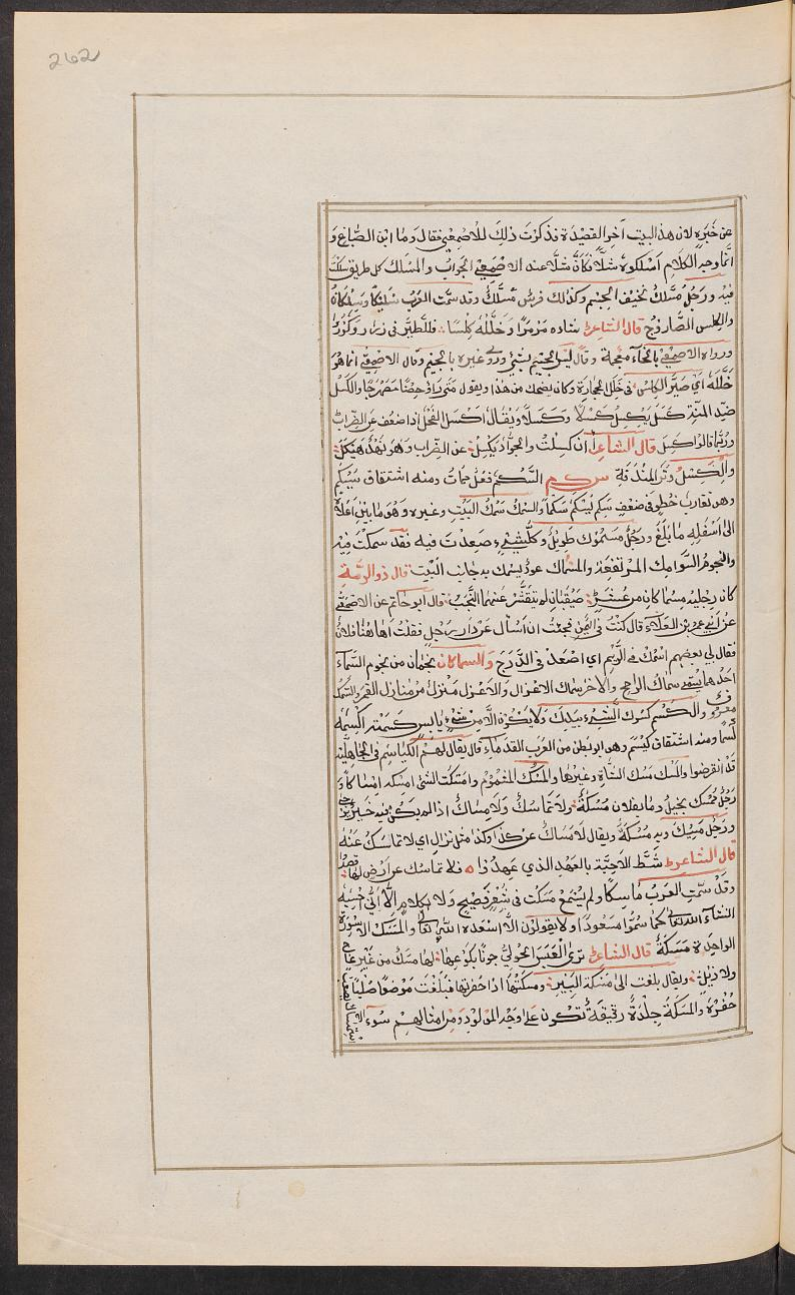 262
عن خَبَرِهِ لان هذا البيت آخر القصيدة فذكرتُ ذلِكَ للاصمعي فقال وما ابن الصبّاغ و
انّما وجه الكلام اَسْلَكوهُ شلّا فكاَنّ شلّا عند الاصمعي الجوابُ والمَسْلَك كل طريق سلكتَ
فيه ورَجُلٌ مُسَلَّكٌ نحيف الجِسْم وكذلك فرسٌ مُسَلَّكٌ وقد سمّت العَرَبُ سُلَيْكًا وسِلْكانَ
والكِلس الصّاروُج قال الشاعر شاده مَرْمَرًا وجَلَّلَهُ كِلْسًا فللطَّيْرِ في ذراه وكُورُ
ورواه الاصمعي بالخاء معجمة وقال ليس الجيم بشيء وروى غيره بالجيم وقال الاصمعي انما هُوَ
خَلَّلَهُ اي صَيَّر الكِلسَ في خَلَل الحجارة وكان يضحك من هذا ويقول متى راوا حِصْنًا مُصَهْرَجًا والكَسَل
ضِدّ المُنّة كَسِلَ يَكْسَلُ كَسَلًا وكَسِلًا ويُقال اكسَلَ الفَحْلُ اذا ضعُف عن الضِراب
ورُبَّما قالوا كَسِلَ قال الشاعر أَأَن كَسِلتُ والجوادُ يَكْسَلُ عن الضِراب وهو نَهْدٌ هَيْكَلُ
والكِسْلُ وَتَر المِنْدَفَة س ك م السَّكْمُ فعلٌ مُمات ومنه اشتقاق سَيْكَم
وهو تقارب خَطْوٍ في ضعفٍ سَكِمَ يَسْكَمُ سَكْمًا والسَّمْكُ سَمْكُ البَيْتِ وغيره وَهُوَ ما بَيْن اَعْلاهُ
الى اَسْفَلِهِ ما بَلَغَ ورجُلٌ مَسْمُوك طويلٌ وكلُّ شيءٍ صَعِدتَ فيه فقد سَمَكْتَ فيه
والنجومُ السَّوامِك المرتفعَة والمِسْماك عودٌ يسمك به جانب البَيْت قال ذو الرمّة
كان رجليه مِسْماكان من عُشَرٍ صَقْبانِ لم يتقشّر عنهما النَّجَبُ قال ابو حاتم عن الاصمعي
عن ابي عمرو بن العَلاء قال كنتُ في اليمن فجئت ان اسْأل عن دار رجلٍ فقلت اَهاهُنا فلانٌ
فقال لي بعضهم اسْمُك في الرَّيْم اي اصعَد في الدَّرَج والسماكان نجمان من نجوم السَّماء
احدهما يُسَمّى سِماكَ الرامح والآخر سماك الاعزَل والاعزَل منْزِلٌ من منازل القمر والسَّمَك
معروف والكَسْم كَسْرك الشيءَ بيدك ولا يكون الّا مِنْ شيءٍ يابسٍ كَسَمْتُه اكسِمُه
كَسْمًا ومنه اشتقاق كَيْسَم وهو ابو بطن من العَرَب القدماء قال يقال لهُم الكَياسِم في الجاهليّة
قد انقرضوا والمَسْك مَسْك الشّاةِ وغيرها والمِسْك المَشْمُوم وامسَكْتُ الشَيَّ امْسِكه اِمْساكًا وَ
رَجُلٌ مُسَكٌ بخيلٌ وما بفلان مُسْكَةٌ ولا تَماسُكٌ ولا مِساكٌ اذا لم يكن فيه خَيْرٌ يُرْجى
ورَجُلٌ مَسِيكٌ وبه مُسْكَةٌ ويقال لامَسَاكَ عن كذا وكذا مثل نَزالِ اي لا تماسُك عَنْهُ
قال الشاعر شَطَّ الاحبّة بالعَهْدِ الذي عَهِدُوا فلا تماسُك عن اَرْضٍ لها قصدوا
وقد سمّت العَرَبُ ماسِكًا ولم يُسْمَعْ مسكْت في شِعْرٍ فَصِيحٍ ولا كلامٍ الّا انّي احْسِبُه
انشاء الله كما سُمُّوا مَسْعُودًا ولا يقولون الّا اَسْعَده الله تعالى والمَسَك الاسورة
الواحِدة مَسَكَةٌ قال الشاعر ترى العَبَسَ الحَوليَّ جونًا بكوعها لها مَسَكًا من غَيْرِ عاجٍ
ولا ذَبْلِ ويقال بلغت الى مُسْكَة البَيْر ومسكتُها اذا حفرتها فبلَغْتَ مَوْضِعًا صُلْبًا يَصْعُب
حُفْرُهُ والمَسَكَةُ جِلْدَةٌ رقيقَةٌ تكون على وَجْه المولُود ومن امثالهِمْ سُوءُ الاستمساك